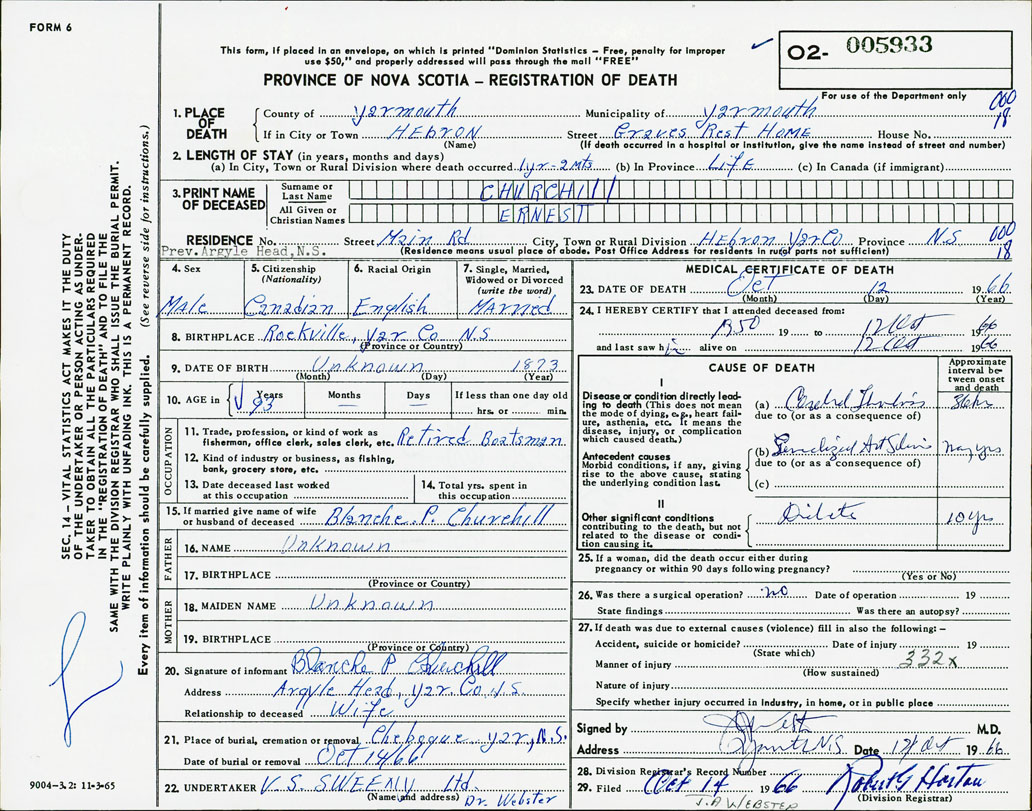 FORM 6
This form, if placed in an envelope, on which is printed "Dominion Statistics – Free, penalty for improper
use $50," and properly addressed will pass through the mail "FREE"
PROVINCE OF NOVA SCOTIA – REGISTRATION OF DEATH
02- 005933
For use of the Department only
1. PLACE OF DEATH
County of Yarmouth Municipality of Yarmouth 000 18
If in City or Town HEBRON Street Graves Rest HOME House No.
(Name) (If death occurred in a hospital or institution, give the name instead of street and number)
2. LENGTH OF STAY (in years, months and days)
(a) In City, Town or Rural Division where death occurred 1yr-2Mts (b) In Province LifE (c) In Canada (if immigrant)
3. PRINT NAME OF DECEASED
Surname or Last Name CHURCHIll
All Given or Christian Names ERNEST
RESIDENCE No. Street Main Rd City, Town or Rural Division Hebron Yar Co Province N.S 000 18
Prev. Argyle Head, N.S. (Residence means usual place of abode. Post Office Address for residents in rural parts not sufficient)
4. Sex Male
5. Citizenship (Nationality) Canadian
6. Racial Origin English
7. Single, Married, Widowed or Divorced (write the word) Married
8. BIRTHPLACE Rockville, Yar Co N.S
(Province or Country)
9. DATE OF BIRTH Unknown 1873
(Month) (Day) (Year)
10. AGE in Years 93 Months — Days — If less than one day old
hrs. or min.
OCCUPATION
11. Trade, profession, or kind of work as
fisherman, office clerk, sales clerk, etc. Retired Boatsman
12. Kind of industry or business, as fishing,
bank, grocery store, etc.
13. Date deceased last worked
at this occupation
14. Total yrs. spent in
this occupation
15. If married give name of wife
or husband of deceased Blanche. P. Churchill
FATHER
16. NAME Unknown
17. BIRTHPLACE
(Province or Country)
MOTHER
18. MAIDEN NAME Unknown
19. BIRTHPLACE
(Province or Country)
20. Signature of informant Blanche P Churchill
Address Argyle Head, Yar Co N.S.
Relationship to deceased Wife
21. Place of burial, cremation or removal Chebogue Yar, N.S.
Date of burial or removal Oct 14/66
22. UNDERTAKER V. S. SWEENY Ltd.
(Name and address) Dr. Webster
MEDICAL CERTIFICATE OF DEATH
23. DATE OF DEATH Oct 12 1966
(Month) (Day) (Year)
24. I HEREBY CERTIFY that I attended deceased from:
1950 19 to 12 Oct 1966
and last saw him alive on 12 Oct 1966
CAUSE OF DEATH
Approximate interval between onset and death
I
Disease or condition directly leading to death (This does not mean the mode of dying, e.g., heart failure, asthenia, etc. It means the disease, injury, or complication which caused death.)
(a) Cerebral Thrombosis 36 hr
due to (or as a consequence of)
Antecedent causes
Morbid conditions, if any, giving rise to the above cause, stating the underlying condition last.
(b) Generalized many yrs
due to (or as a consequence of)
(c)
II
Other significant conditions contributing to the death, but not related to the disease or condition causing it.
Diabetes 10 yrs
25. If a woman, did the death occur either during
pregnancy or within 90 days following pregnancy?
(Yes or No)
26. Was there a surgical operation? no Date of operation 19
State findings Was there an autopsy?
27. If death was due to external causes (violence) fill in also the following: –
Accident, suicide or homicide? Date of injury 19
(State which)
Manner of injury 332x
(How sustained)
Nature of injury
Specify whether injury occurred in industry, in home, or in public place
Signed by M.D.
Address N.S. Date 12 Oct 1966
28. Division Registrar's Record Number
29. Filed Oct 14 1966 Robert G Horton
J. A WEBSTER (Division Registrar)
SEC. 14 – VITAL STATISTICS ACT MAKES IT THE DUTY
OF THE UNDERTAKER OR PERSON ACTING AS UNDER-
TAKER TO OBTAIN ALL THE PARTICULARS REQUIRED
IN THE "REGISTRATION OF DEATH" AND TO FILE THE
SAME WITH THE DIVISION REGISTRAR WHO SHALL ISSUE THE BURIAL PERMIT.
WRITE PLAINLY WITH UNFADING INK. THIS IS A PERMANENT RECORD.
Every item of information should be carefully supplied. (See reverse side for instructions.)
9004–3.2: 11-3-65